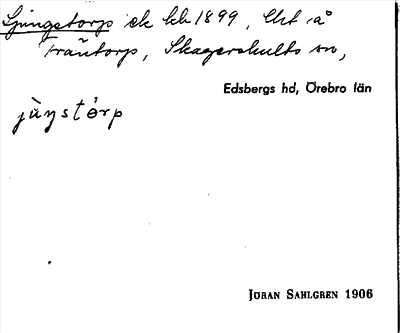 Ljungstorp ek kb 1899, Urt. å
Träntorp, Skagershults sn,
Edsbergs hd, Örebro län
jùŋstórp
JÖRAN SAHLGREN 1906